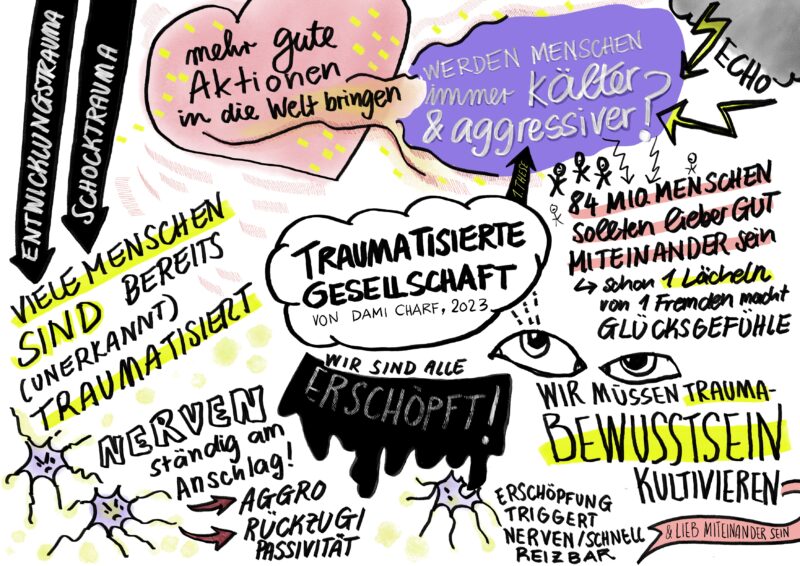 ENTWICKLUNGSTRAUMA
SCHOCKTRAUMA
mehr gute
Aktionen
in die Welt bringen
WERDEN MENSCHEN
immer kälter
& aggressiver?
ECHO
1. THESE
84 MIO. MENSCHEN
sollten lieber GUT
MITEINANDER sein
↳ schon 1 Lächeln
von 1 Fremden macht
GLÜCKSGEFÜHLE
TRAUMATISIERTE
GESELLSCHAFT
VON DAMI CHARF, 2023
VIELE MENSCHEN
SIND BEREITS
(UNERKANNT)
TRAUMATISIERT
WIR SIND ALLE
ERSCHÖPFT!
WIR MÜSSEN TRAUMA-
BEWUSSTSEIN
KULTIVIEREN
& LIEB MITEINANDER SEIN
NERVEN
ständig am
Anschlag!
→ AGGRO
→ RÜCKZUG |
PASSIVITÄT
ERSCHÖPFUNG
TRIGGERT
NERVEN/SCHNELL
REIZBAR